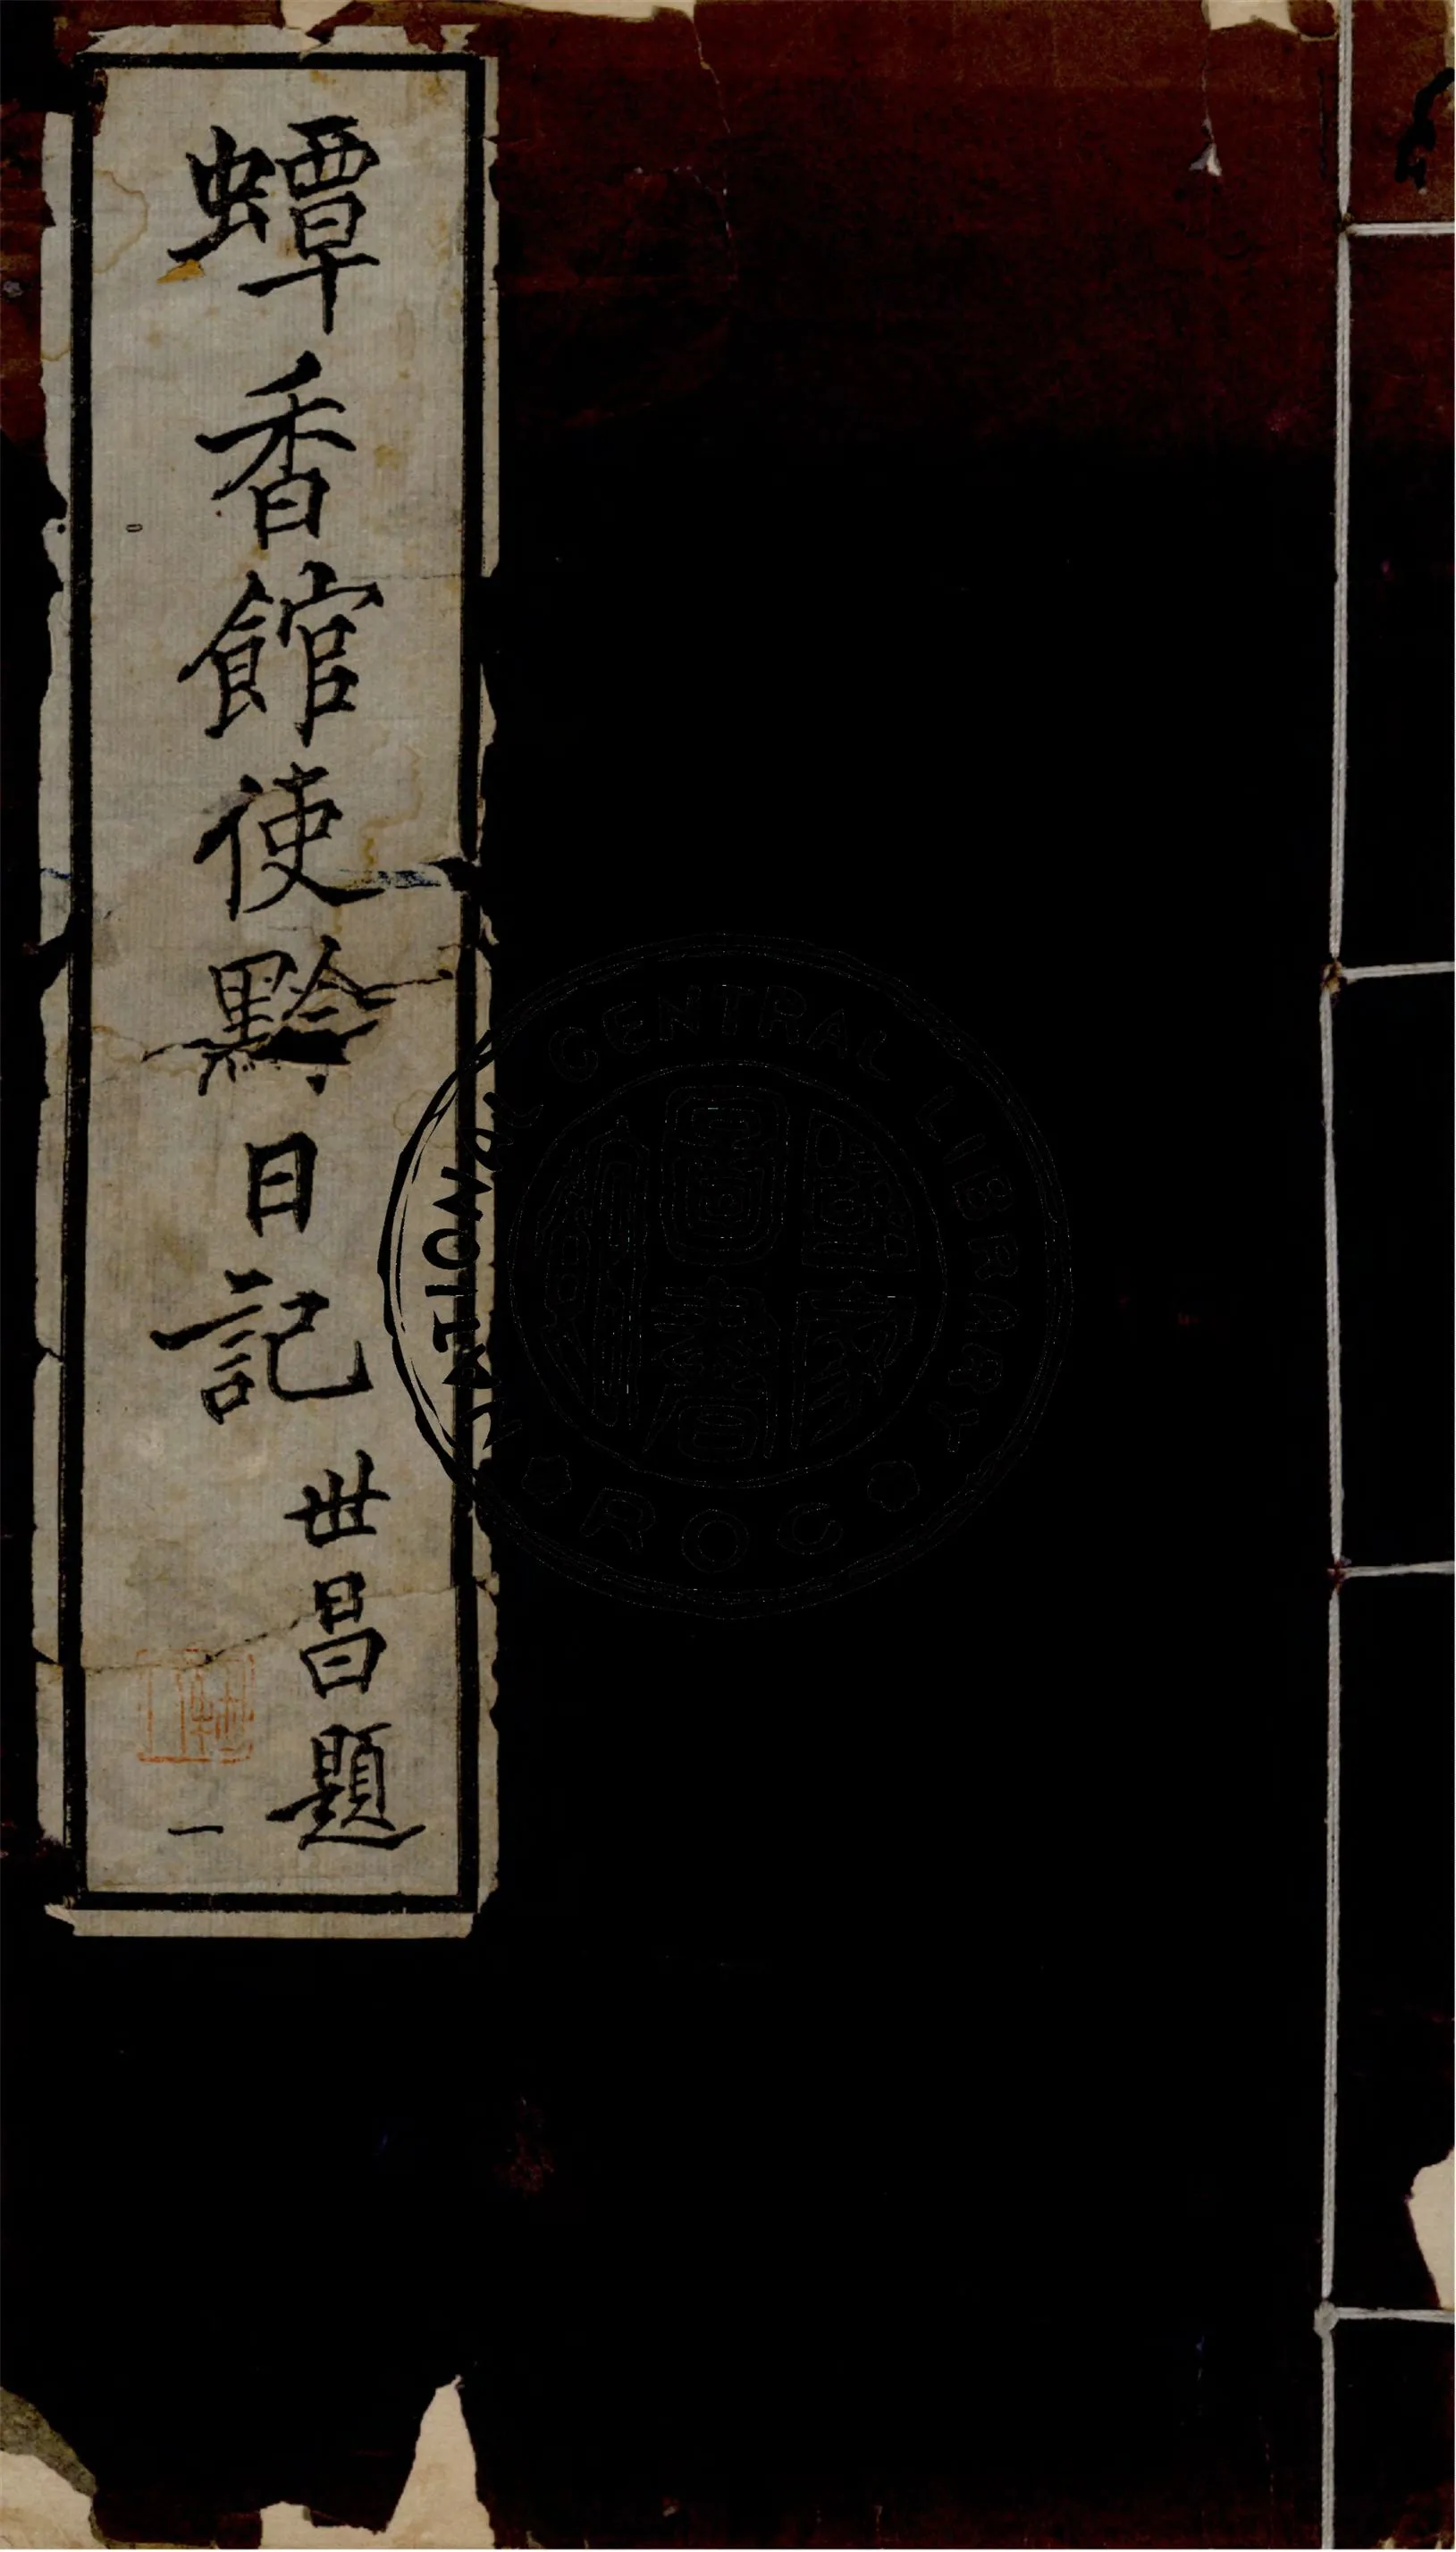 蟫香館使黔日記
世昌題
一
NATIONAL CENTRAL LIBRARY
國家圖書館
ROC